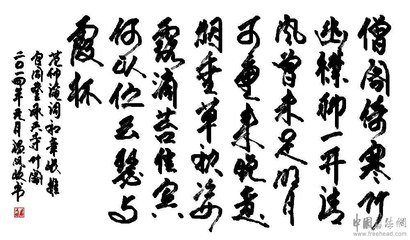 僧阁倚寒竹
幽襟聊一开清
风曾未足明月
可重来晚意
烟垂草秋姿
露滴苔佳宾
何以伫云瑟与
霞杯
范仲淹词初章嶰推
官同登承天寺竹阁
二〇一四年元月
www.freehead.com